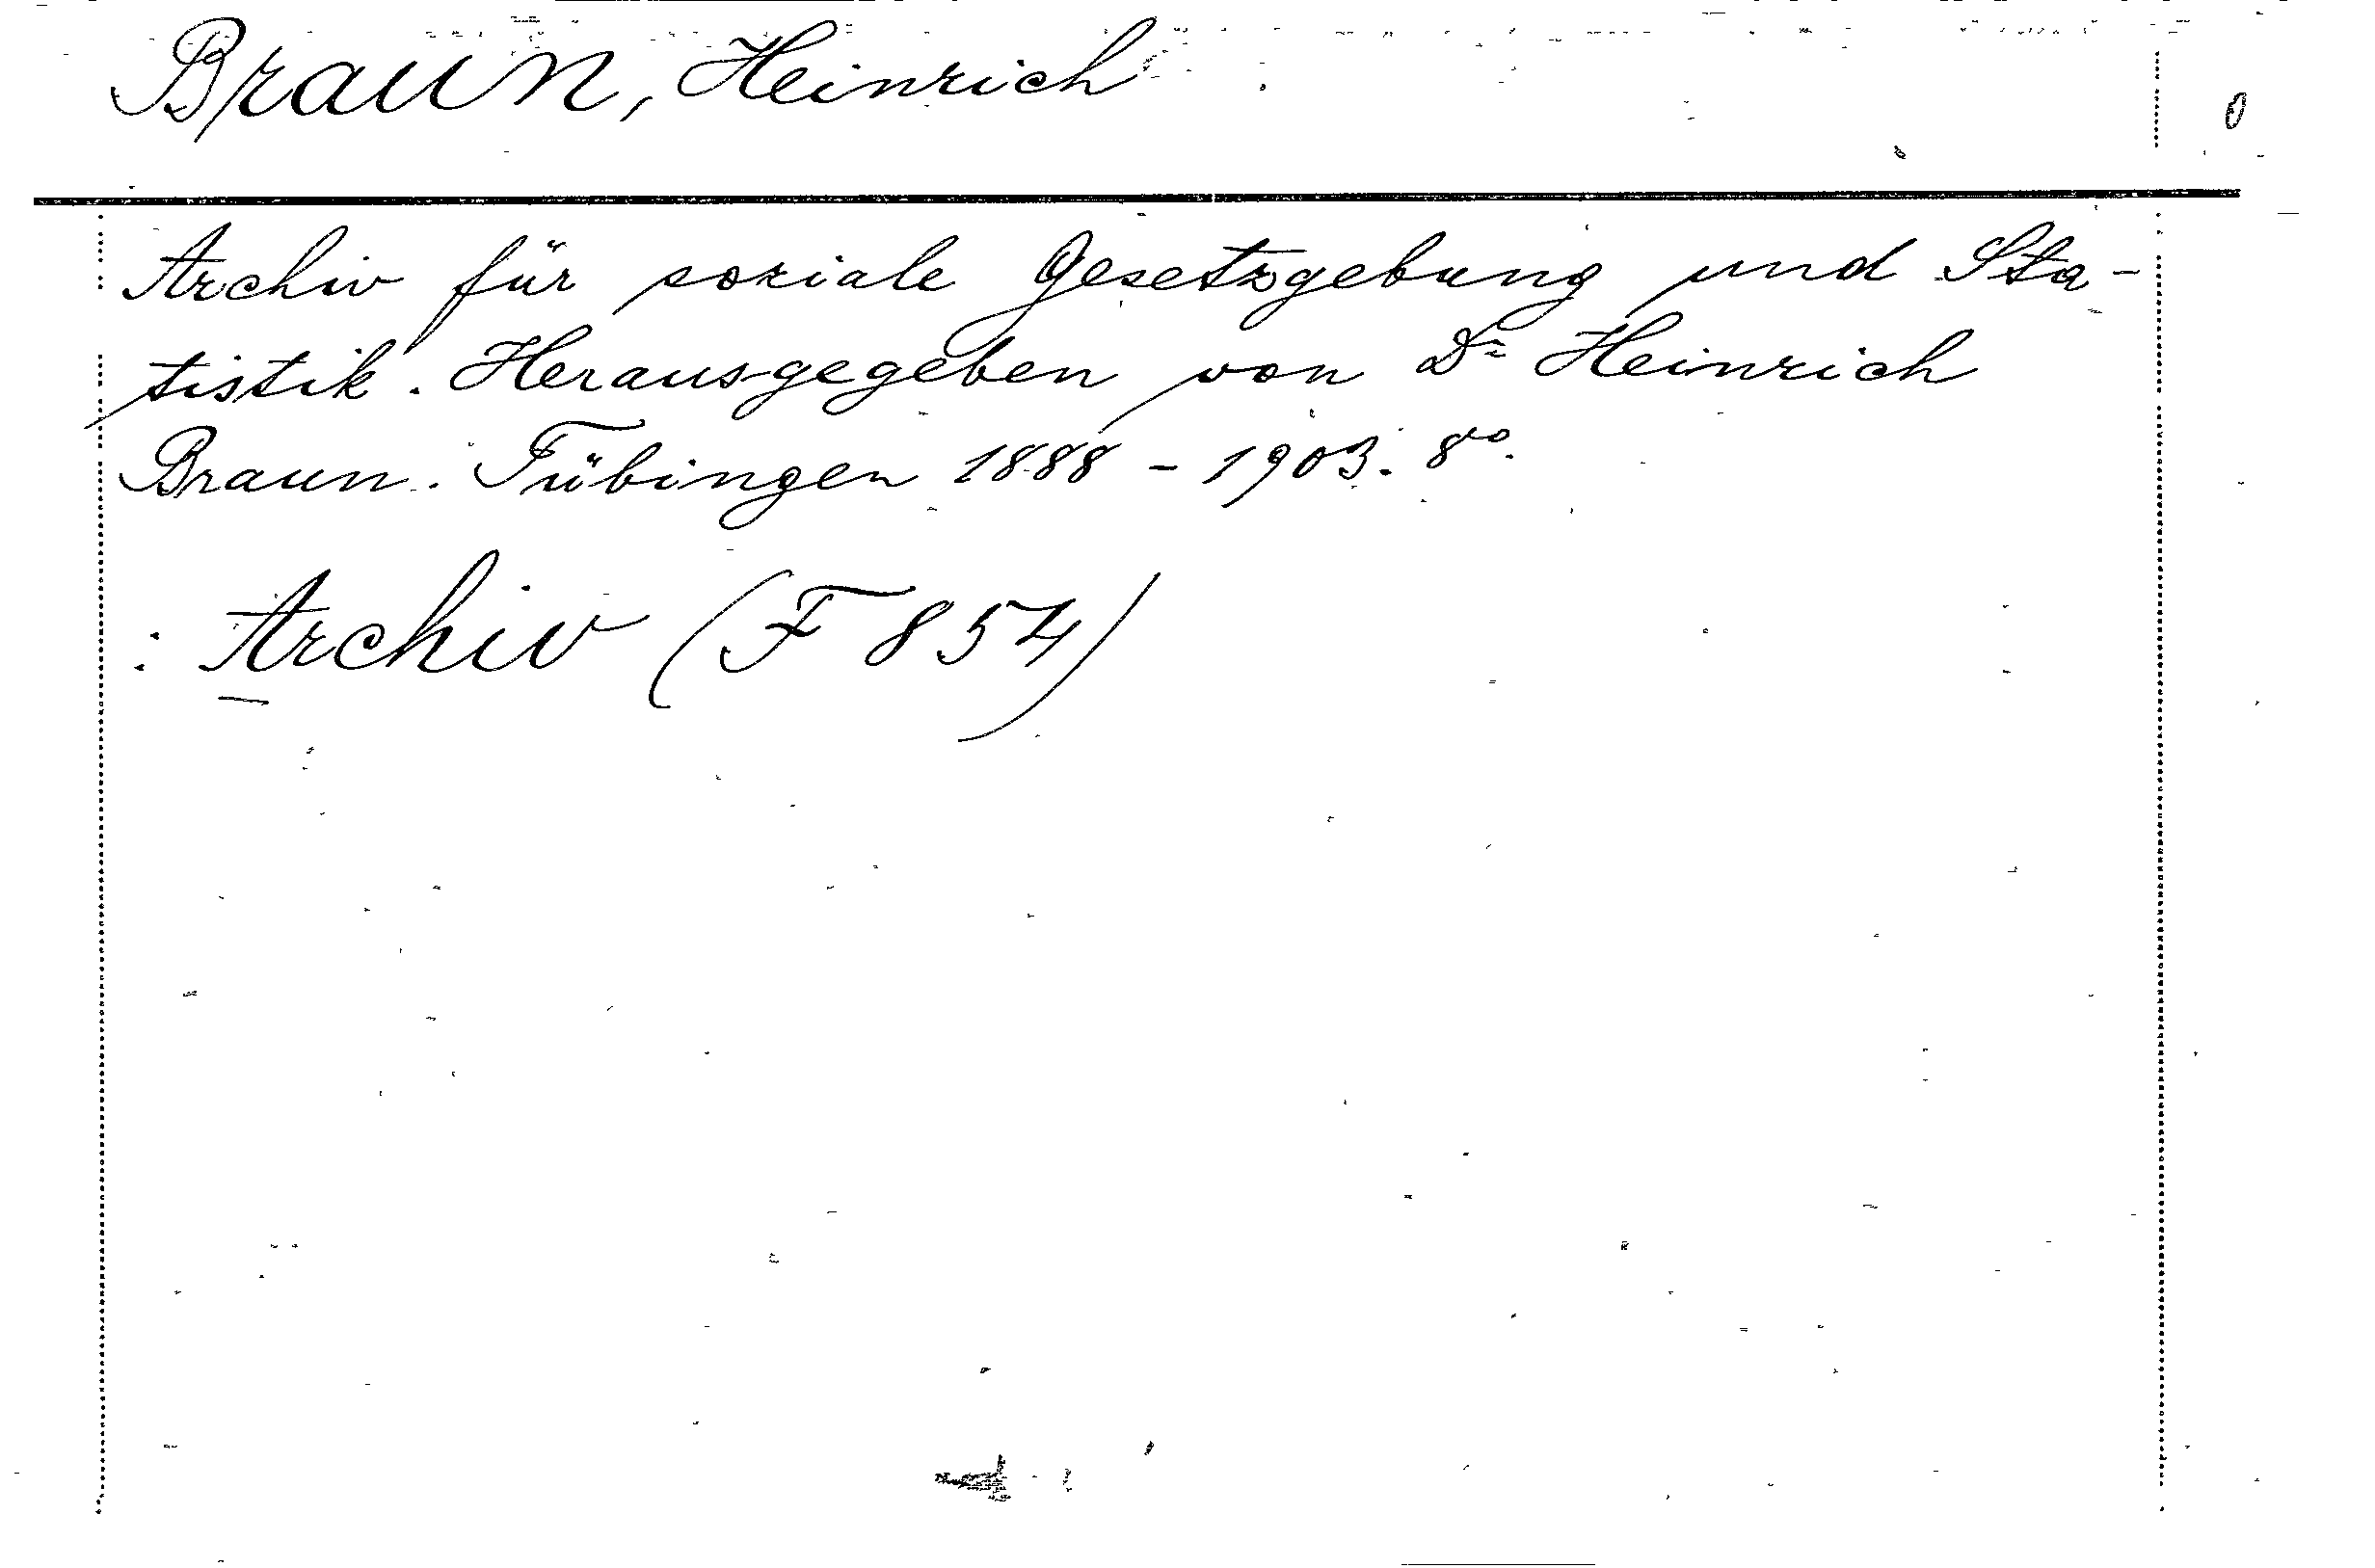 Braun, Heinrich
Archiv für soziale Gesetzgebung und Sta-
tistik. Herausgegeben von Dr Heinrich
Braun. Tübingen 1888 - 1903. 8vo.
: Archiv (F 854)